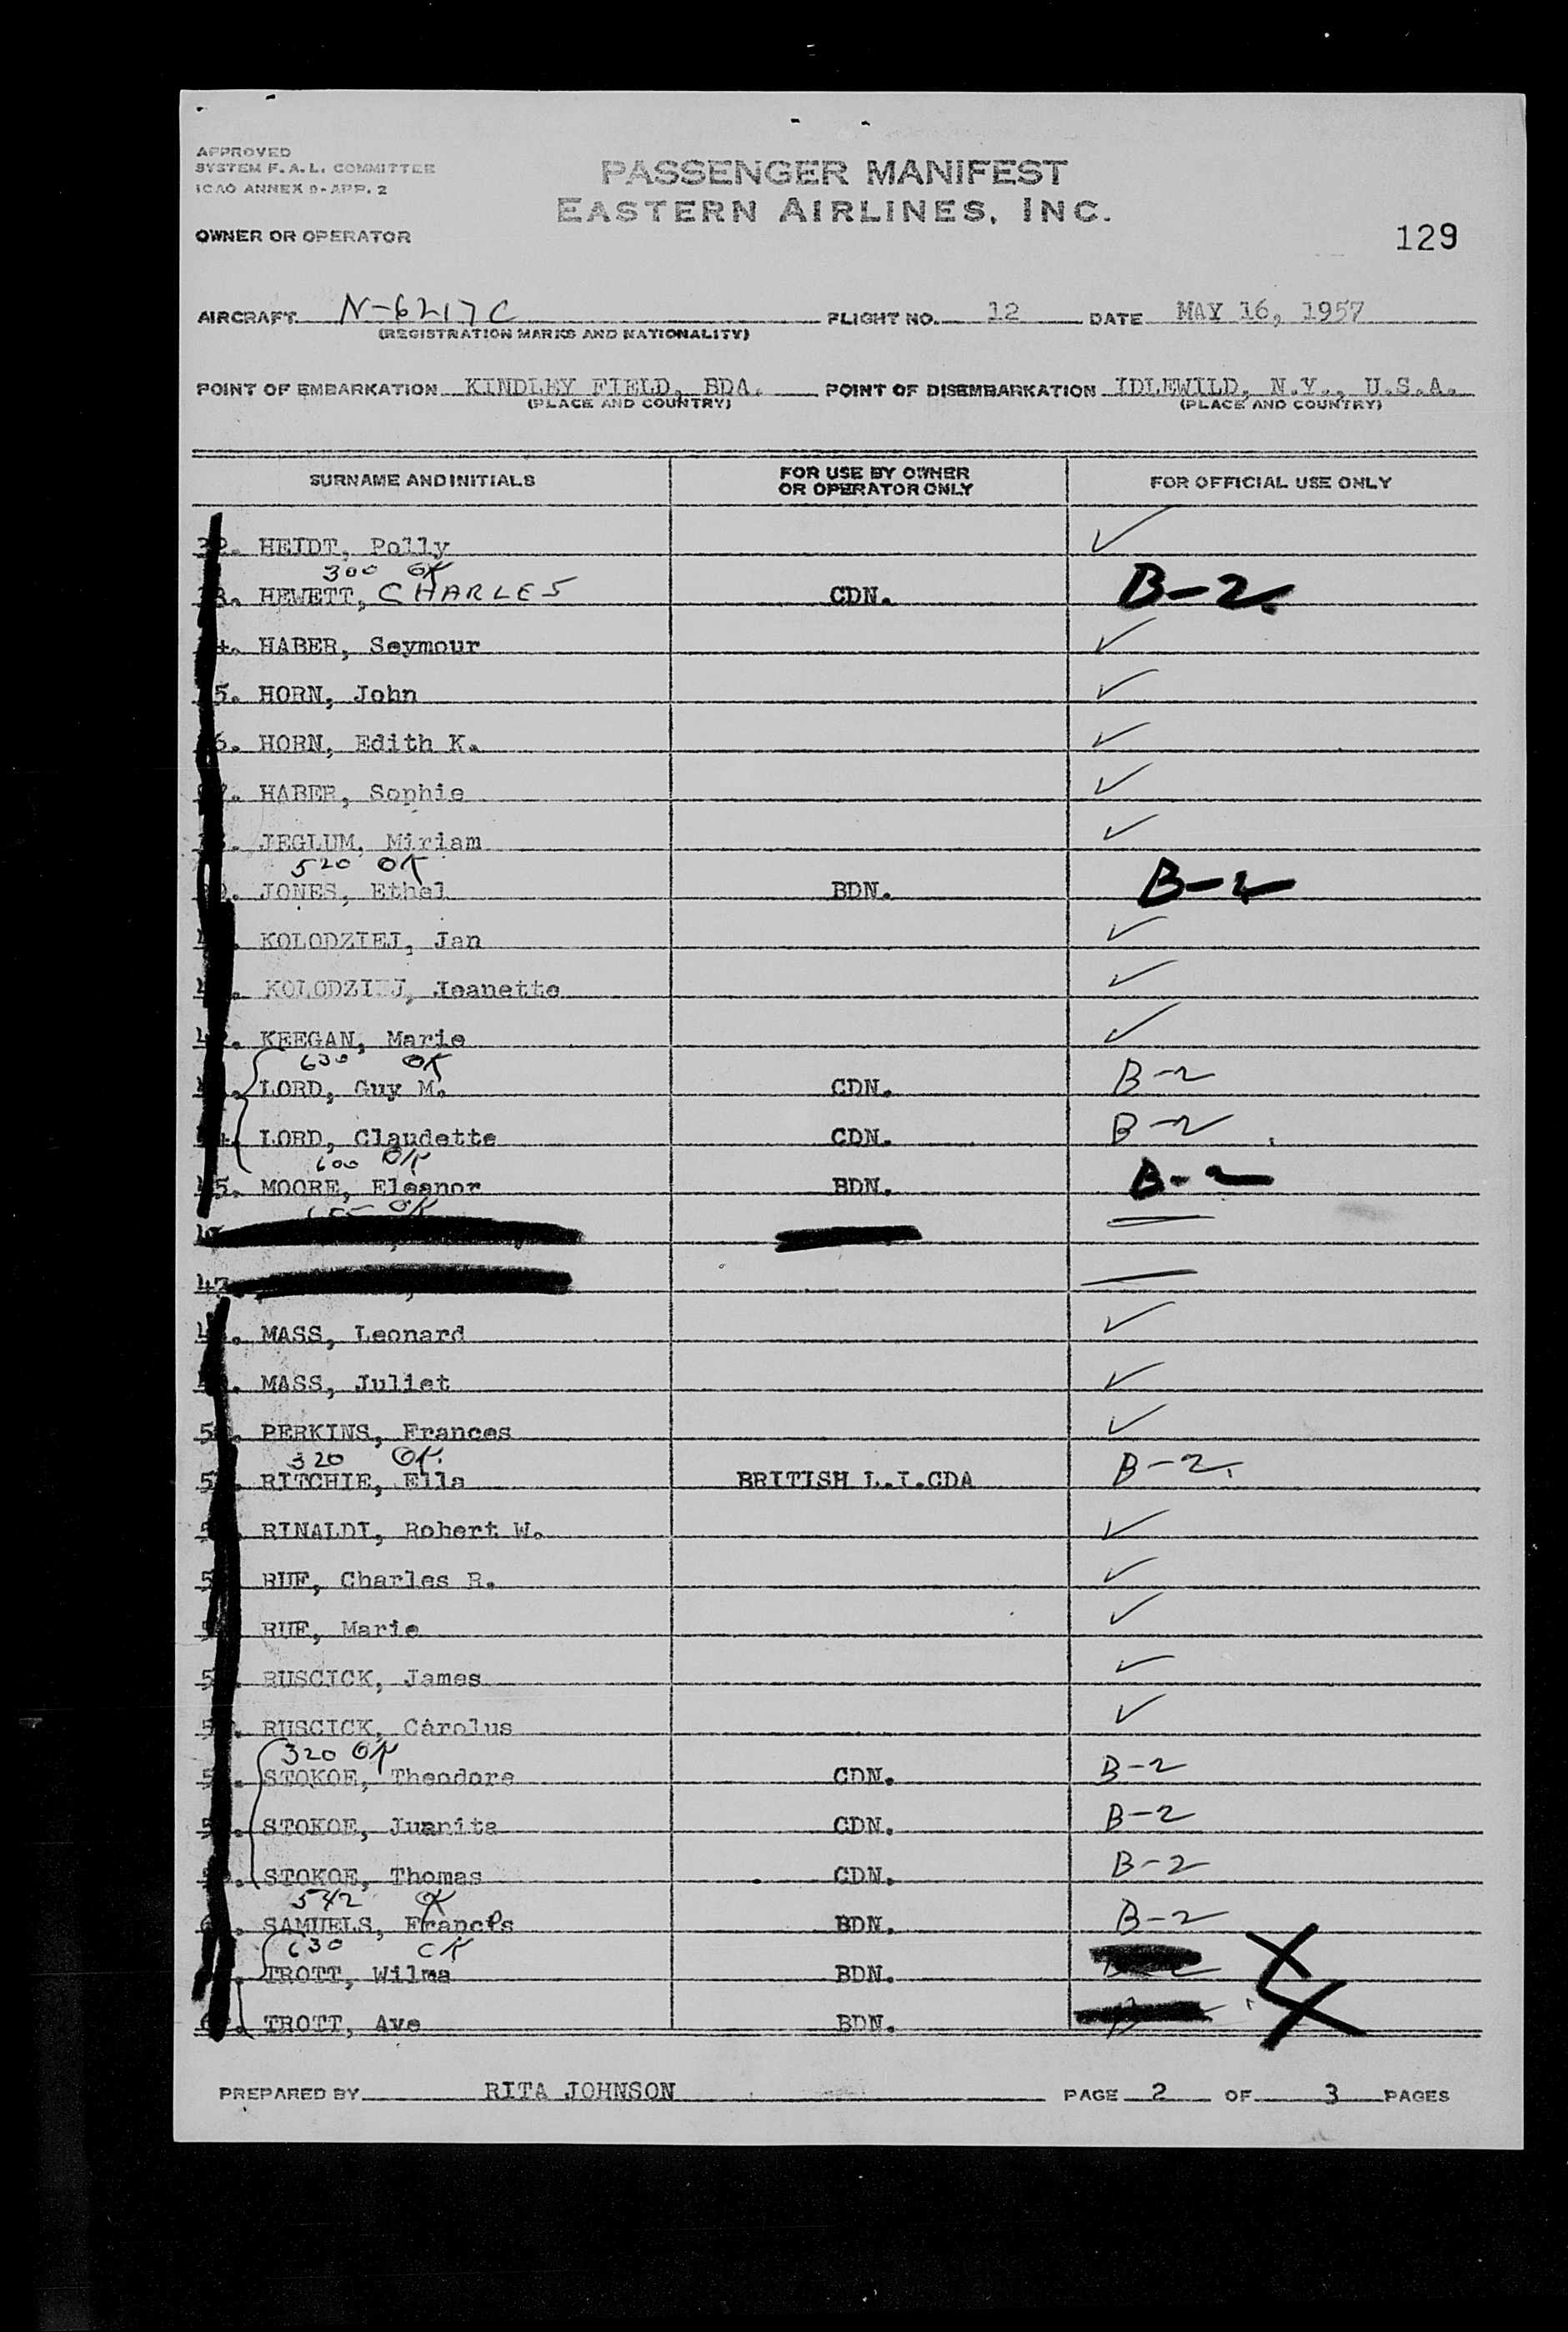 APPROVED
SYSTEM F.A.L. COMMITTEE
ICAO ANNEX 9-APP. 2
PASSENGER MANIFEST
EASTERN AIRLINES, INC.
OWNER OR OPERATOR
129
AIRCRAFT N-6217C FLIGHT NO. 12 DATE MAY 16, 1957
(REGISTRATION MARKS AND NATIONALITY)
POINT OF EMBARKATION KINDLEY FIELD, BDA. POINT OF DISEMBARKATION IDLEWILD, N.Y., U.S.A.
(PLACE AND COUNTRY) (PLACE AND COUNTRY)
SURNAME AND INITIALS FOR USE BY OWNER OR OPERATOR ONLY FOR OFFICIAL USE ONLY
32. HEIDT, Polly ✓
300 OK
3. HEWETT, CHARLES CDN. B-2
4. HABER, Seymour ✓
5. HORN, John ✓
6. HORN, Edith K. ✓
7. HABER, Sophie ✓
JEGLUM, Miriam ✓
520 OK
JONES, Ethel BDN. B-2
4 KOLODZIEJ, Jan ✓
4 KOLODZIEJ, Jeanette ✓
42. KEEGAN, Marie ✓
630 OK
LORD, Guy M. CDN. B-2
4. LORD, Claudette CDN. B-2
600 OK
45. MOORE, Eleanor BDN. B-2
OK
47
4 MASS, Leonard ✓
4 MASS, Juliet ✓
5 PERKINS, Frances ✓
320 OK.
5 RITCHIE, Ella BRITISH L.I.CDA B-2
5 RINALDI, Robert W. ✓
5 RUF, Charles R. ✓
5 RUF, Marie ✓
5 RUSCICK, James ✓
5 RUSCICK, Carolus ✓
320 OK
5 STOKOE, Theodore CDN. B-2
5 STOKOE, Juanita CDN. B-2
5 STOKOE, Thomas CDN. B-2
542 OK
6 SAMUELS, Francis BDN. B-2
630 OK
TROTT, Wilma BDN. X
6 TROTT, Ave BDN. X
PREPARED BY RITA JOHNSON PAGE 2 OF 3 PAGES